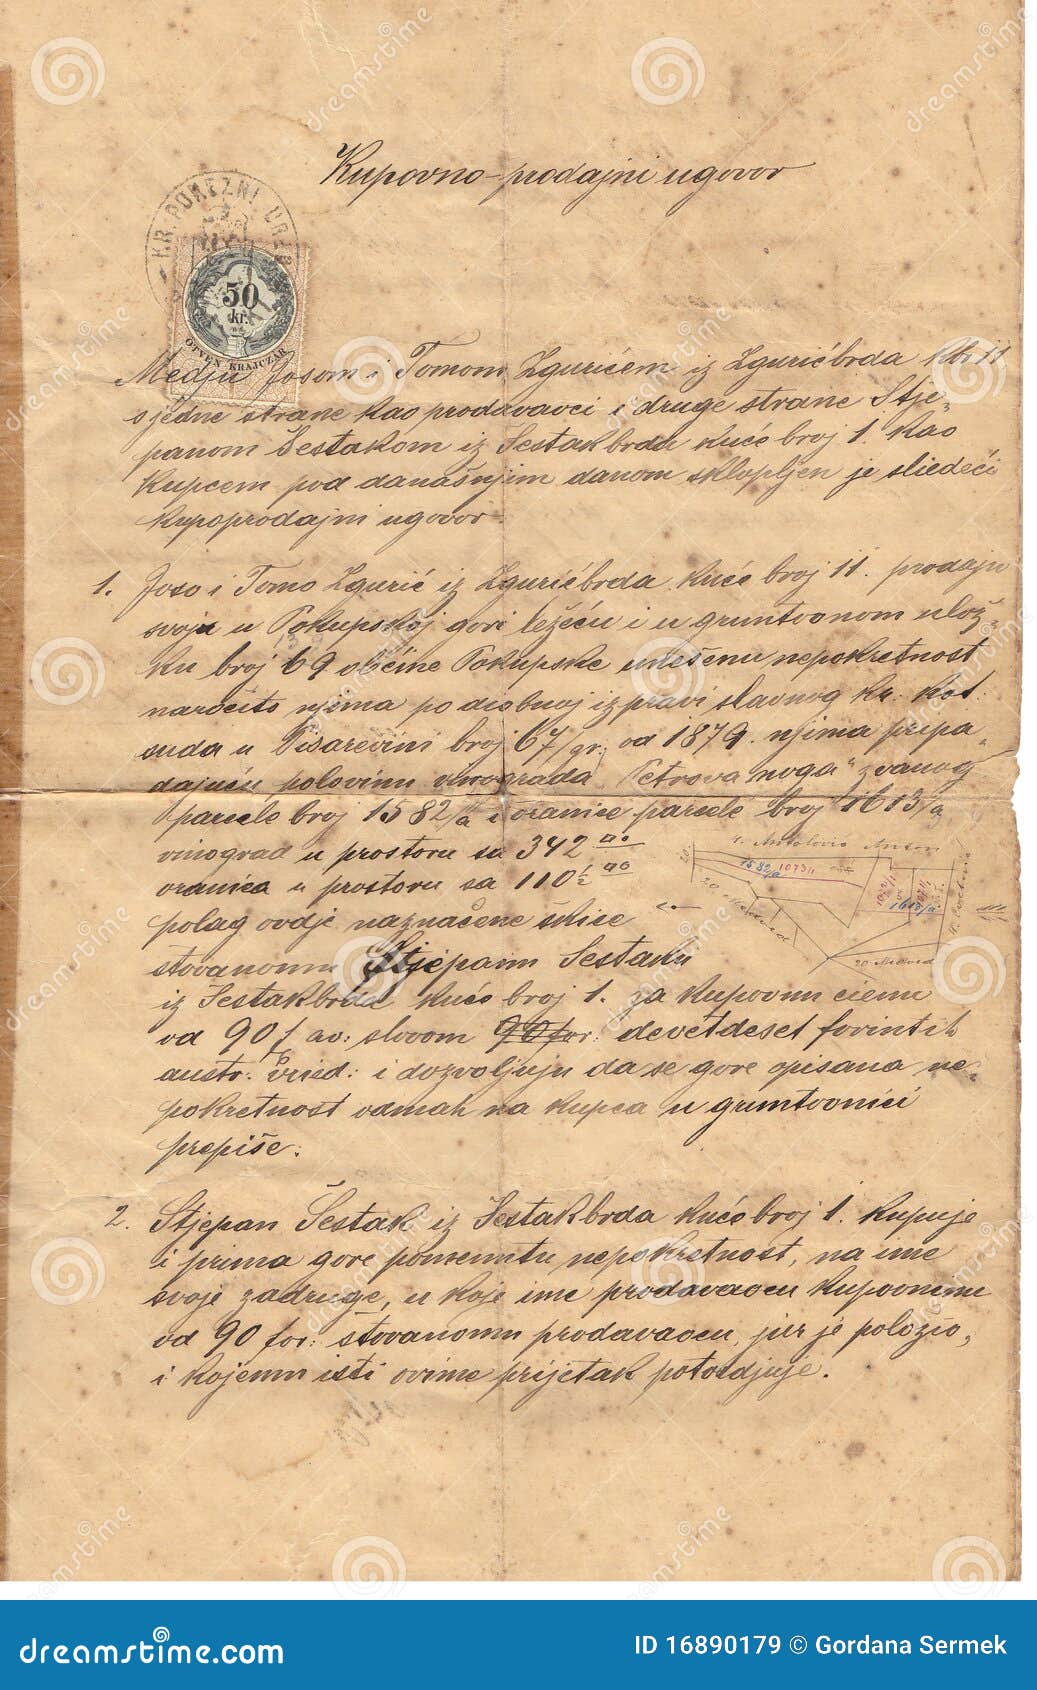 Kupovno-prodajni ugovor
KR. POREZNI URED
50
kr.
ÖTVEN KRAJCZÁR
Medju Josom i Tomom Zgurićem iz Zgurićbrda kbr 11
s jedne strane kao prodavaoci i druge strane Stje-
panom Šestakom iz Šestakbrda kuće broj 1. kao
kupcem pod današnjim danom sklopljen je sliedeći
kupoprodajni ugovor.
1. Joso i Tomo Zgurić iz Zgurićbrda kuće broj 11. prodaju
svoju u Pokupskoj gori ležeću i u gruntovnom ulož-
ku broj 69 občine Pokupske unešenu nepokretnost
naročito njima po diobnoj izpravi slavnog kr. kot.
suda u Pisarevini broj 67/gr. od 1879. njima pripa-
dajuću polovinu vinograda „Petrova noga" zvanog
parcele broj 1582/a i oranice parcele broj 1613/a
vinograd u prostoru sa 342
oranica u prostoru sa 110½
polag ovdje naznačene skice
štovanomu Stjepanu Šestaku
iz Šestakbrda kuće broj 1. za kupovnu cienu
od 90 f av: slovom 90 for: devetdeset forintih
austr. vried: i dozvoljuju da se gore opisana ne-
pokretnost odmah na kupca u gruntovnici
prepiše.
1582/a 1073/1
1613/a
2. Stjepan Šestak iz Šestakbrda kuće broj 1. kupuje
i prima gore pomenutu nepokretnost, na ime
svoje zadruge, u koje ime prodavaocu kupovninu
od 90 for: štovanomu prodavaocu jur je položio,
i kojemu isti ovime prijetak potvrdjuje.
dreamstime.com
ID 16890179 © Gordana Sermek